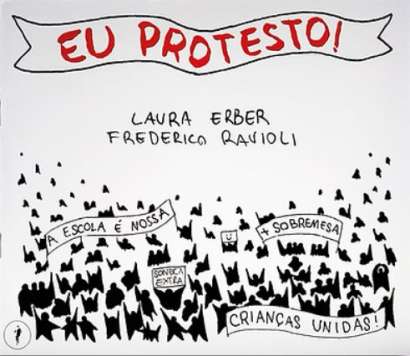 EU PROTESTO!
LAURA ERBER
FREDERICO RAVIOLI
A ESCOLA É NOSSA
+ SOBREMESA
SONECA
EXTRA
CRIANÇAS UNIDAS!